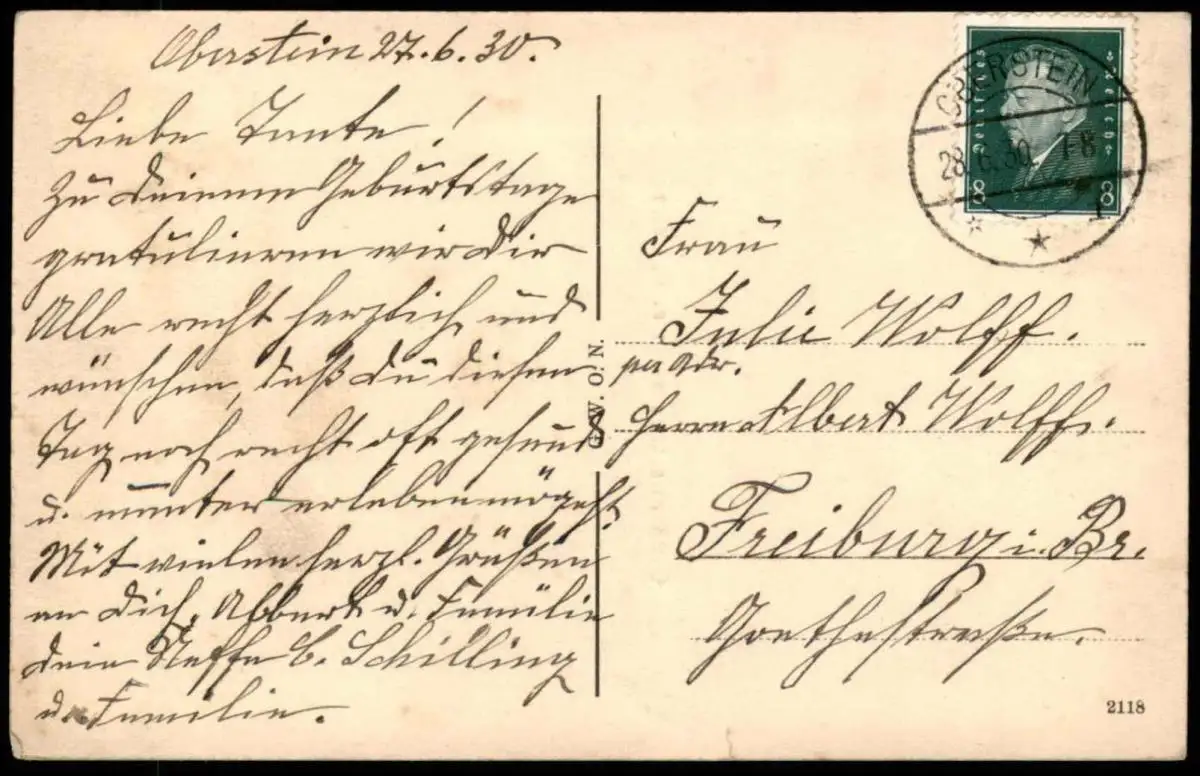 Oberstein 27.6.30.
Liebe Tante!
Zu Deinem Geburtstage
gratulieren wir Dir
Alle recht herzlich und
wünschen, daß Du diesen
Tag noch recht oft gesund
u. munter erleben mögest.
Mit vielen herzl. Grüßen
an Dich, Albert u. Familie
Dein Neffe C. Schilling
u. Familie.
OBERSTEIN
28.6.30. 7-8
Deutsches Reich
8 8
Frau
Julie Wolff.
per Adr.
Herrn Albert Wolff.
Freiburg i. Br.
Goethestraße.
W. O. N.
2118